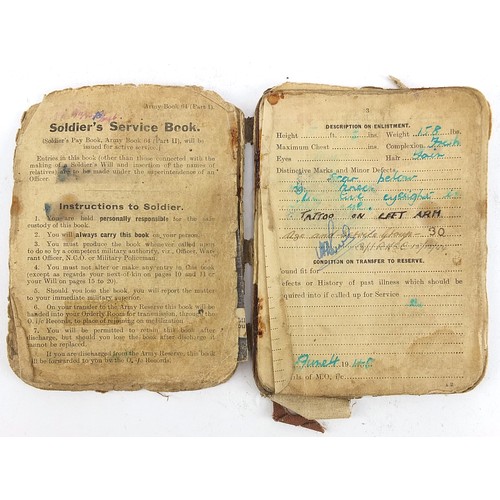 Army Book 64 (Part I).
Soldier's Service Book.
(Soldier's Pay Book, Army Book 64 (Part II), will be
issued for active service.)
Entries in this book (other than those connected with the
making of a Soldier's Will and insertion of the names of
relatives) are to be made under the superintendence of an
Officer.
Instructions to Soldier.
1. You are held personally responsible for the safe
custody of this book.
2. You will always carry this book on your person.
3. You must produce the book whenever called upon
to do so by a competent military authority, viz., Officer, War-
rant Officer, N.C.O. or Military Policeman.
4. You must not alter or make any entry in this book
(except as regards your next-of-kin on pages 10 and
your Will on pages 15 to 20).
5. Should you lose the book, you will report the matter to
your immediate military superior.
6. On your transfer to the Army Reserve this book will be
handed into your Orderly Room for transmission, through the
O. i/c Records, to place of rejoining on
7. You will be permitted to retain this book after
discharge, but should you lose the book after discharge it
cannot be replaced.
If you are discharged from the Army Reserve, this book
will be forwarded to you by the O. i/c Records.
3
DESCRIPTION ON ENLISTMENT.
Height ft. Weight 158 lbs.
Maximum Chest ins. Complexion Fresh
Eyes Hair Fair
Distinctive Marks and Minor Defects.
Scar below
knee
eyesight
TATTOO ON LEFT ARM
Age and Service Group 30
CONDITION ON TRANSFER TO RESERVE.
Found fit for
Defects or History of past illness which should be
enquired into if called up for Service
19
Initials of M.O. i/c